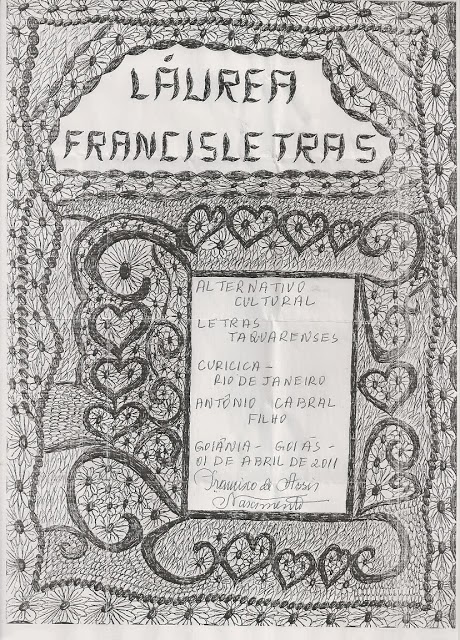 LÁUREA
FRANCISLETRAS
ALTERNATIVO
CULTURAL
LETRAS
TAQUARENSES
CURICICA -
RIO DE JANEIRO
ANTÔNIO CABRAL
FILHO
GOIÂNIA - GOIÁS -
01 DE ABRIL DE 2011
Francisco de Assis
Nascimento